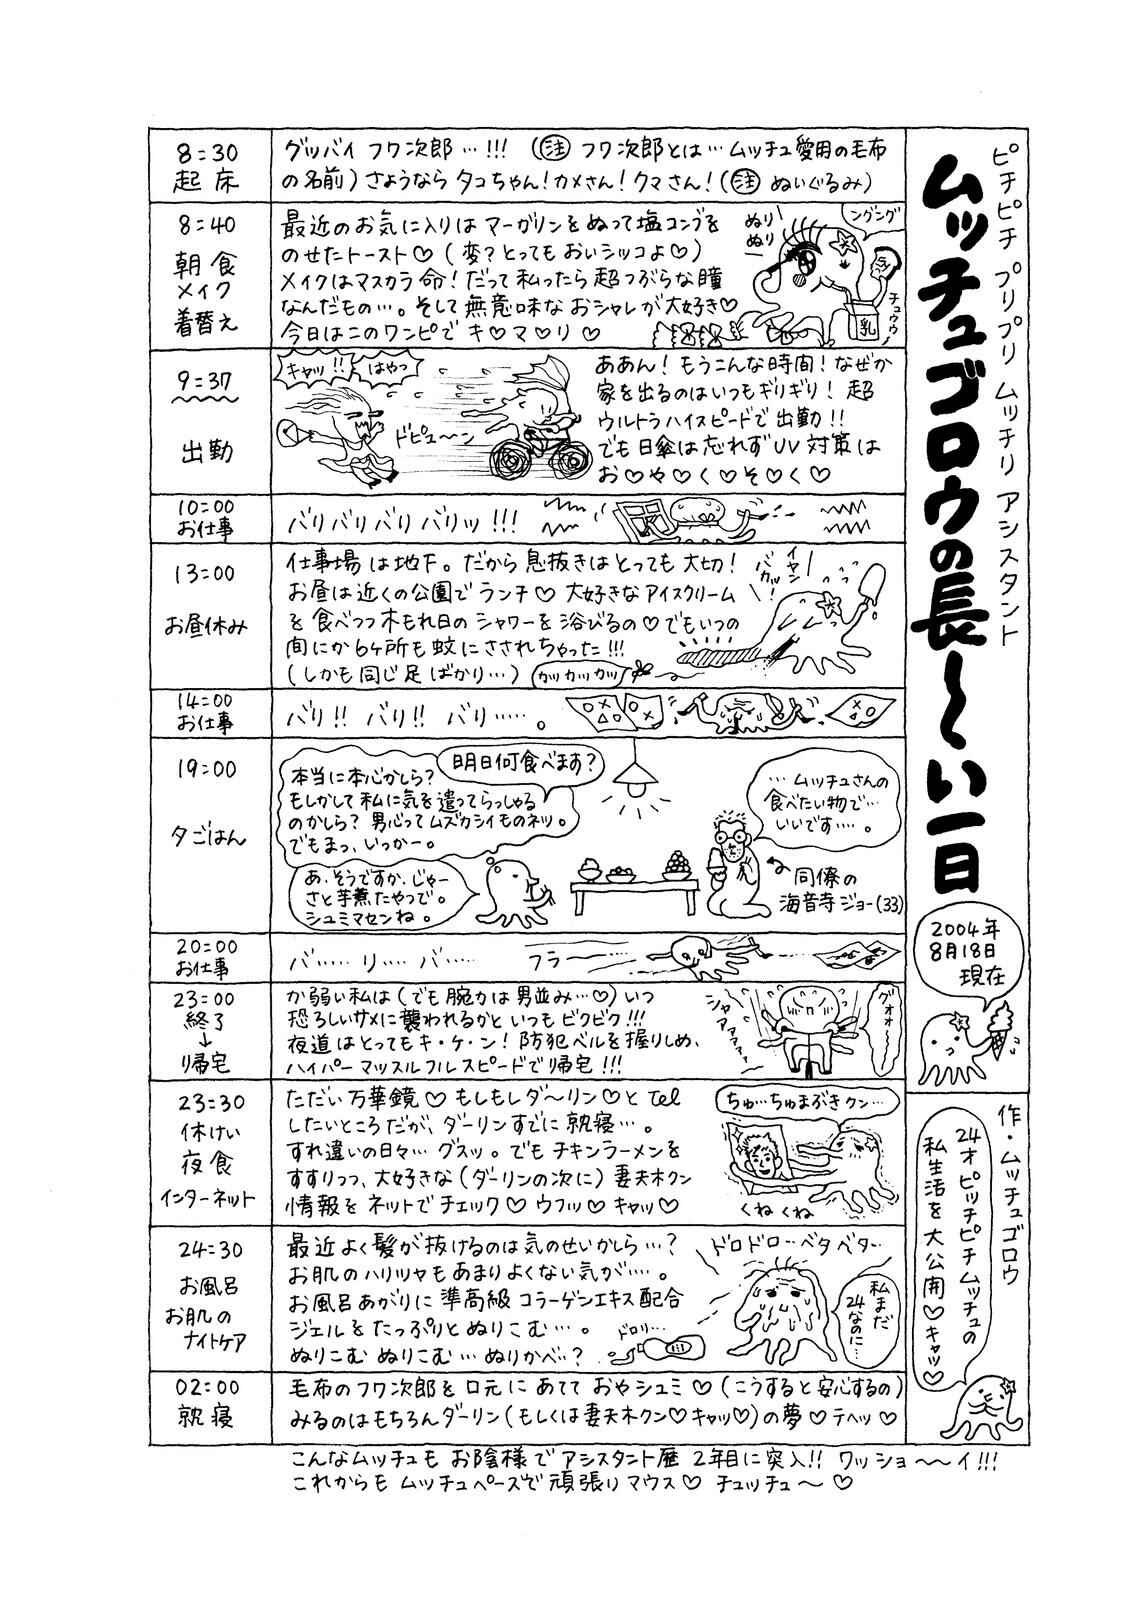 ピチピチ プリプリ ムッチリ アシスタント
ムッチュゴロウの長〜い一日
2004年
8月18日
現在
作・ムッチュゴロウ
24才 ピッチピチムッチュの
私生活を大公開♡キャッ♡
8:30
起床
グッバイ フワ次郎…!!! (注 フワ次郎とは…ムッチュ愛用の毛布
の名前) さようなら タコちゃん!カメさん!クマさん!(注 ぬいぐるみ)
8:40
朝食
メイク
着替え
最近のお気に入りは マーガリンをぬって塩コンブを
のせたトースト♡ (変?とってもおいシッコよ♡)
メイクはマスカラ命!だって私ったら超つぶらな瞳
なんだもの…。そして無意味なおシャレが大好き♡
今日はこのワンピで キ♡マ♡リ ♡
ぬり
ぬり
ングング
乳
チュウウ
9:37
出勤
キャッ!!
はやっ
ドピュ〜ン
ああん! もうこんな時間! なぜか
家を出るのはいつもギリギリ! 超
ウルトラハイスピードで出勤!!
でも日傘は忘れずUV対策は
お♡や♡く♡そ♡く♡
10:00
お仕事
バリバリバリバリッ!!!
13:00
お昼休み
仕事場は地下。だから息抜きはとっても大切!
お昼は近くの公園でランチ♡ 大好きなアイスクリーム
を食べつつ木もれ日のシャワーを浴びるの♡でもいつの
間にか6ヶ所も蚊にさされちゃった!!!
(しかも同じ足ばかり…)
カッカッカッ
イヤン
バカッ!
14:00
お仕事
バリ!! バリ!! バリ……。
19:00
夕ごはん
明日何食べます?
本当に本心かしら?
もしかして私に気を遣ってらっしゃる
のかしら? 男心ってムズカシイものネッ。
でもまっ、いっかー。
あ、そうですか、じゃー
さと芋煮たやつで。
シュミマセンね。
…ムッチュさんの
食べたい物で…
いいです…。
同僚の
海音寺ジョー(33)
20:00
お仕事
バ…… リ…… バ……
フラー
23:00
終了
↓
帰宅
か弱い私は(でも腕力は男並み…♡)いつ
恐ろしいサメに襲われるかといつもビクビク!!!
夜道はとってもキ・ケ・ン! 防犯ベルを握りしめ、
ハイパーマッスルフルスピードで帰宅!!!
シャアアアァ
グオォー
23:30
休けい
夜食
インターネット
ただい万華鏡♡ もしもしダ〜リン♡とTel
したいところだが、ダーリンすでに就寝…。
すれ違いの日々…グスッ。でもチキンラーメンを
すすりつつ、大好きな(ダーリンの次に)妻夫木クン
情報をネットでチェック♡ウフッ♡キャッ♡
ちゅ…ちゅまぶきクン…
くね くね
24:30
お風呂
お肌の
ナイトケア
最近よく髪が抜けるのは気のせいかしら…?
お肌のハリツヤもあまりよくない気が…。
お風呂あがりに準高級コラーゲンエキス配合
ジェルをたっぷりとぬりこむ…。
ぬりこむ ぬりこむ…ぬりかべ…?
ドロリ…
ドロドロ…ベタベタ…
私まだ
24なのに…
02:00
就寝
毛布のフワ次郎を口元にあてて おやシュミ♡(こうすると安心するの)
みるのはもちろんダーリン(もしくは妻夫木クン♡キャッ♡)の夢♡テヘッ♡
こんなムッチュもお陰様でアシスタント歴 2年目に突入!! ワッショ〜〜イ!!!
これからも ムッチュペースで頑張りマウス♡ チュッチュ〜 ♡